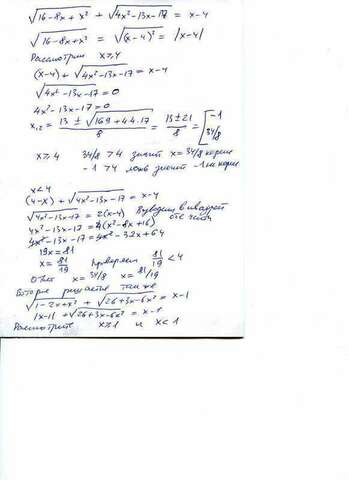 √16-8x+x² + √4x²-13x-17 = x-4
√16-8x+x² = √(x-4)² = |x-4|
Рассмотрим x≥4
(x-4) + √4x²-13x-17 = x-4
√4x²-13x-17 = 0
4x²-13x-17=0
x₁,₂ = 13 ± √169+4·4·17 / 8 = 13±21 / 8 = [ -1 34/8
x≥4 34/8 > 4 значит x = 34/8 корень
-1 > 4 ложь значит -1 не корень
x<4
(4-x) + √4x²-13x-17 = x-4
√4x²-13x-17 = 2(x-4) Возводим в квадрат
4x²-13x-17 = 4(x²-8x+16) обе части
4x²-13x-17 = 4x²-32x+64
19x = 81
x = 81/19 проверяем 81/19 < 4
Ответ x = 34/8 x = 81/19
Второе решается так же
√1-2x+x² + √26+3x-6x² = x-1
|x-1| + √26+3x-6x² = x-1
Рассмотрите x≥1 и x<1